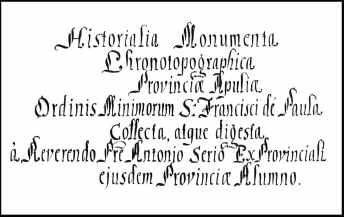 Historialia Monumenta
Chronotopographica
Provinciæ Apuliæ
Ordinis Minimorum S: Francisci de Paula
Collecta, atque digesta
à Reverendo Pre Antonio Serio ExProvinciali
ejusdem Provinciæ Alumno.